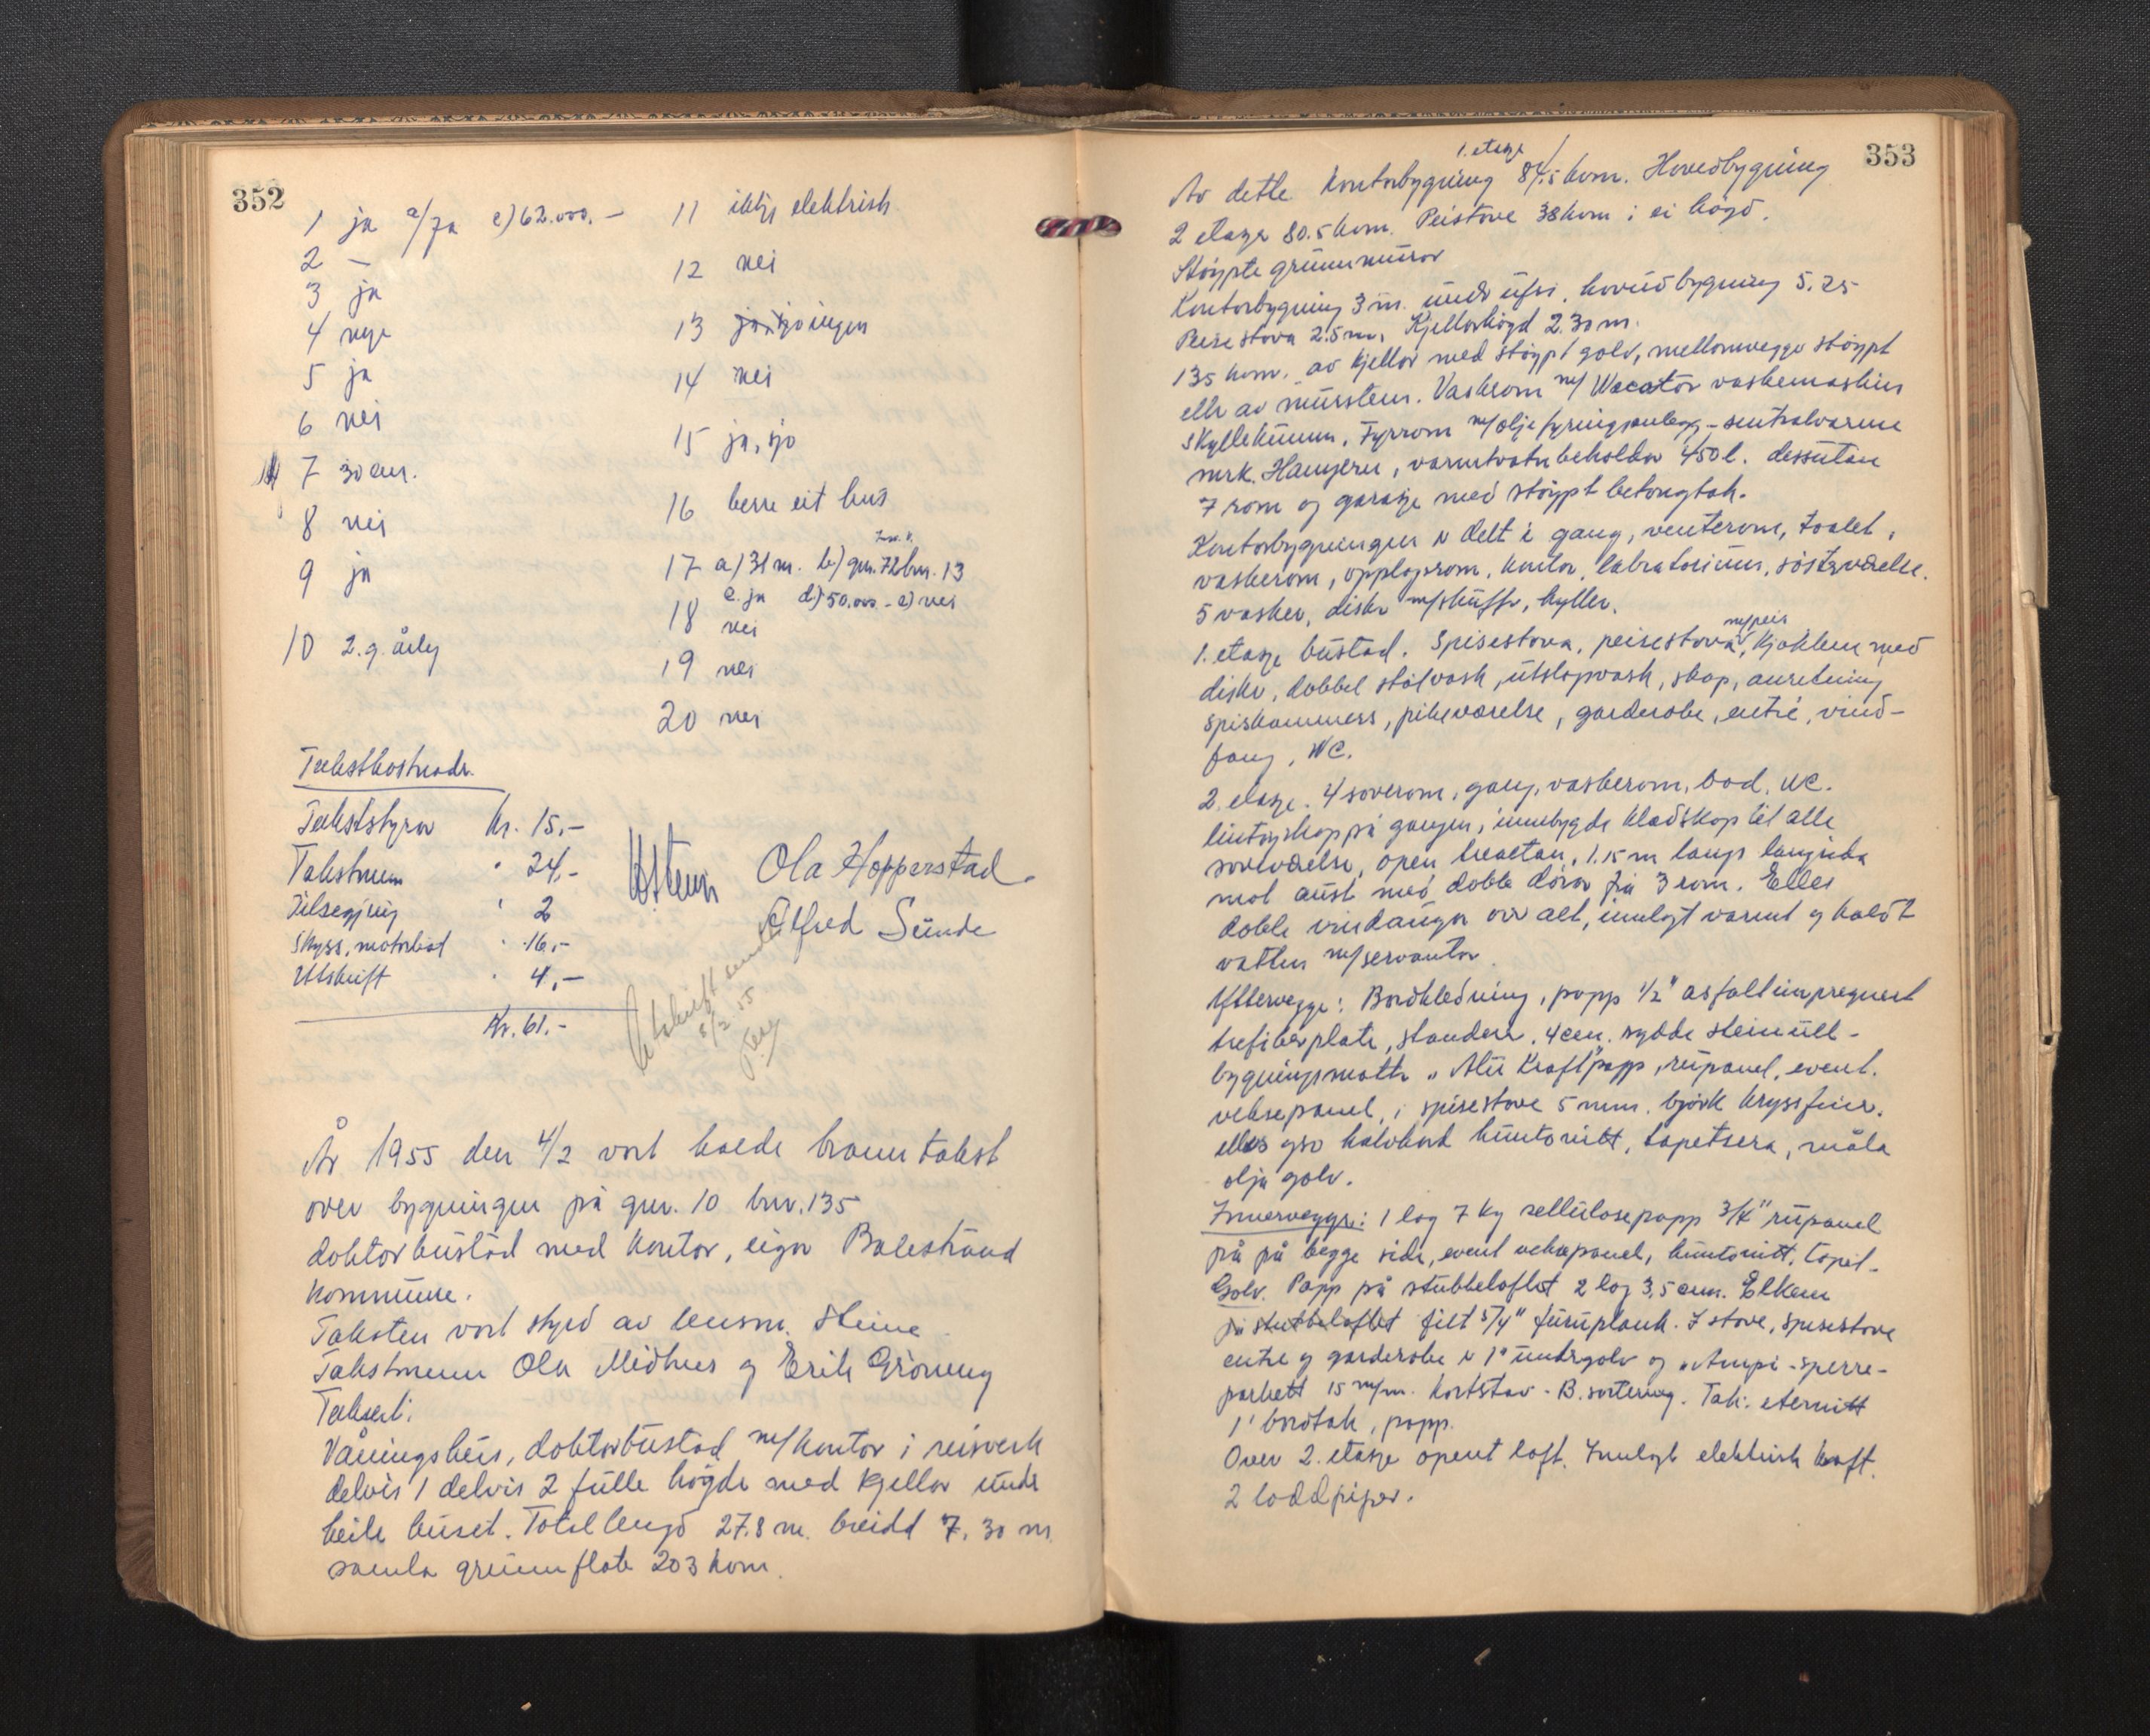 352
1 ja a/ja e) 62.000.-
2 -
3 ja
4 nye
5 ja
6 nei
7 30 cm.
8 nei
9 ja
10 2.g. årleg
11 ikkje elektrisk
12 nei
13 ingen
14 nei
15 ja, sjø
16 berre eit hus
17 a) 31 m. b) gnr. 72 bnr. 13
c. ja d) 50.000.- e) nei
18 nei
19 nei
20 nei
Takstkostnader.
Takststyrar kr. 15,-
Takstmenn " 24,-
Tilsegjing " 2
Skyss, motorbåt " 16,-
Utskrift " 4,-
Kr. 61.-
Ola Hopperstad.
Alfred Sunde
Utskrift sendt
5/2 55
År 1955 den 4/2 vart halde branntakst
over bygningen på gnr. 10 bnr. 135
doktorbustad med kontor, eigar Balestrand
kommune.
Taksten vart styrd av lensm. Steine
Takstmenn Ola Midhus og Erik Grøneng
Taksert:
Våningshus, doktorbustad m/kontor i reisverk
delvis 1 delvis 2 fulle høgder med kjellar under
heile huset. Total lengd 27.8 m. breidd 7.30 m.
samla grunnflate 203 kvm.
353
1. etasje
Av dette kontorbygning 84,5 kvm. Hovedbygning
2 etasjer 80.5 kvm. Peistove 38 kvm i ei høgd.
Støypte grunnmurar
Kontorbygning 3 m. under ufsi, hovudbygning 5.25
Peisestova 2.5 m. Kjellarhøgd 2.30 m.
135 kvm. av kjellar med støypt golv, mellomvegger støypt
eller av murstein. Vaskerom m/ Wacator vaskemaskin
skyllekumm, Fyrrom m/oljefyringsanlegg - sentralvarme
mrk. Hamjern, varmtvatnbeholder 450 l. dessutan
7 rom og garasje med støypt betongtak.
Kontorbygningen er delt i gang, venterom, toalet,
vaskerom, opplagsrom, kontor, labratorium, søsterværelse.
5 vasker, disker m/skuffer, hyller.
1. etasje bustad. Spisestova, peisestova m/peis, kjøkken med
disker, dobbel stålvask, utslagsvask, skap, anretning
spiskammers, pikeværelse, garderobe, entré, vind-
fang, WC.
2. etasje. 4 soverom, gang, vaskerom, bad, WC.
lintøyskap på gangen, innebygde klædskap til alle
soveværelse, open svaletan, 1.15 m langs langsida
mot aust med doble dører frå 3 rom. Elles
doble vindauger over alt, innlagt varmt og kaldt
vatten m/servantar.
Yttervegger: Bordkledning, papp 1/2" asfaltimpregnert
trefiberplate, stendere, 4 cm. sydde steinull-
bygningsmatte, "Alu Kraft" papp, rupanel, event.
vekselpanel, i spisestove 5 mm. bjørk kryssfiner.
elles gro halvhard huntonitt, tapetsera, måla
olja golv.
Innervegger: 1 lag 7 kg sellulosepapp 3/4" rupanel
på på begge sider, event vekselpanel, huntonitt, tapet.
Golv. Papp på stubbeloftet 2 lag 3,5 cm. Elkem
på stubbeloftet filt 5/4" furuplank. I stove, spisestove
entre og garderobe er 1" undergolv og "Ampi-sperre-
parkett 15 m/m. kortstav - B. sortering. Tak: eternitt
1" bordtak, papp.
Over 2. etasje opent loft. Innlagt elektrisk kraft.
2 loddpiper.